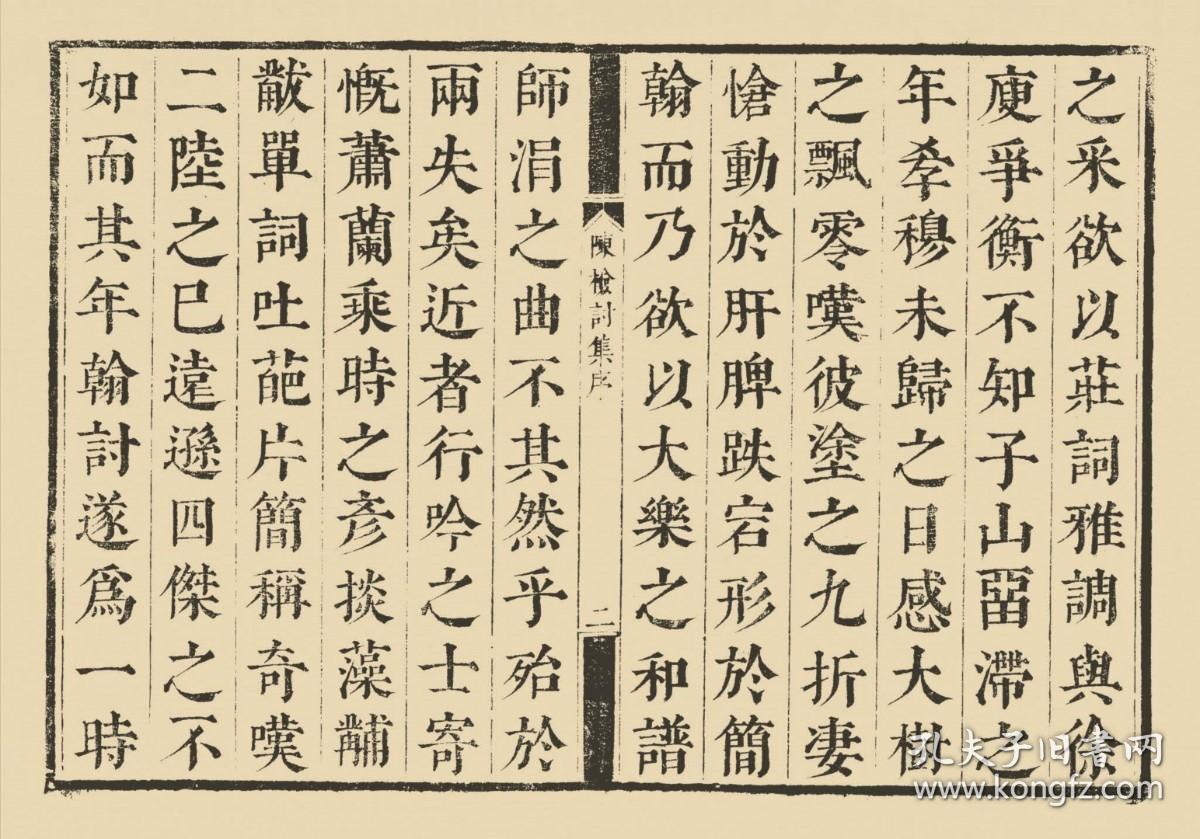 之采欲以莊詞雅調與徐
庾爭衡不知子山畱滯之
年孝穆未歸之日感大樹
之飄零嘆彼塗之九折凄
愴動於肝脾跌宕形於簡
翰而乃欲以大樂之和譜
陳檢討集序
二
師涓之曲不其然乎殆於
兩失矣近者行吟之士寄
慨蕭蘭乘時之彥掞藻黼
黻單詞吐葩片簡稱奇嘆
二陸之已遠遜四傑之不
如而其年翰討遂爲一時
孔夫子旧书网
www.kongfz.com